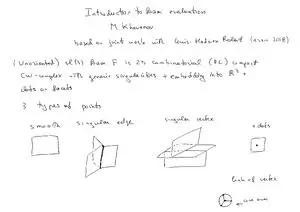 Introduction to foam evaluation
M Khovanov
based on joint work with Louis-Hadrien Robert (arxiv 2018)
(Unoriented) sl(3) foam F is 2D combinatorial (PL) compact
CW-complex with generic singularities + embedding into R³ +
dots on facets
3 types of points
smooth singular edge singular vertex + dots
link of vertex